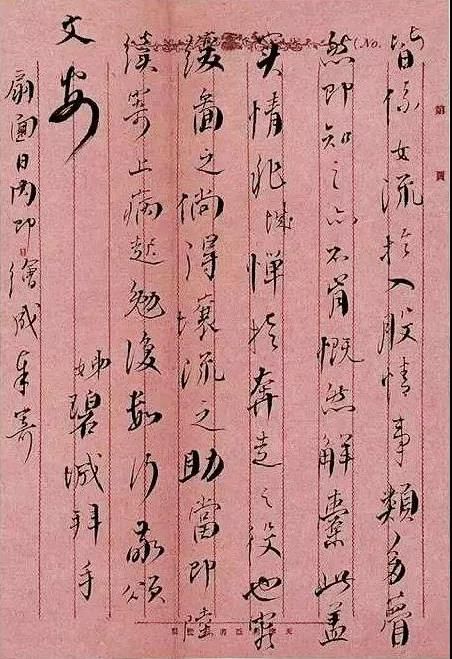 (No.
第 頁
皆係女流於入股情事類多瞢
然即知之亦不肯慨然解囊此蓋
实情非城憚於奔走之役也容
緩圖之倘得壤流之助當即陸
續寄上病起勉復數行敬頌
文安
姊碧城拜手
扇面日内即繪成奉寄